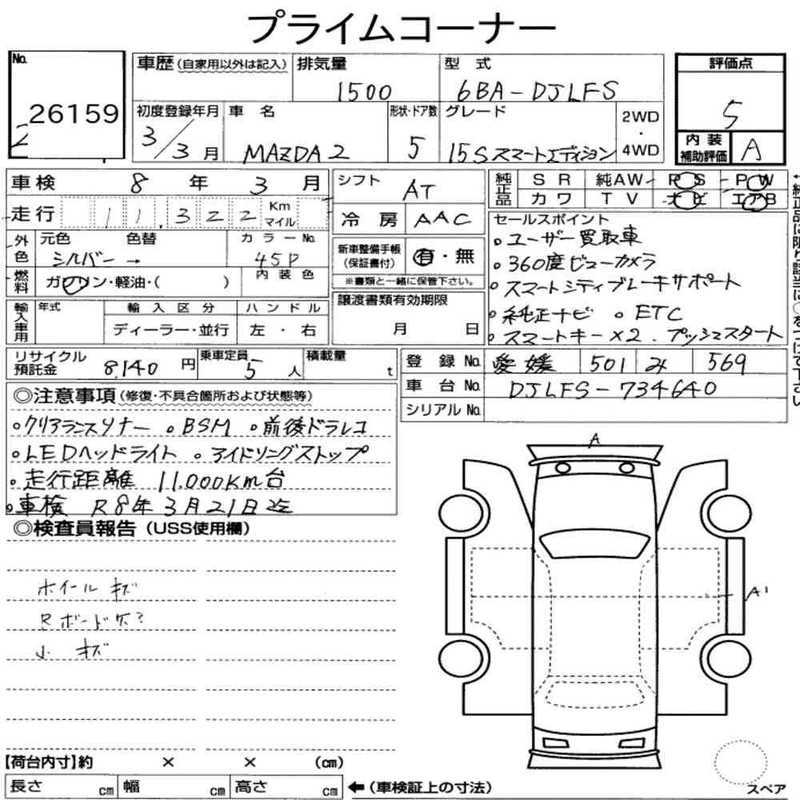 プライムコーナー
No. 26159
車歴 (自家用以外は記入)
排気量 1500
型式 6BA-DJLFS
評価点 5
初度登録年月 3/3月
車名 MAZDA2
形状・ドア数 5
グレード 15Sスマートエディション
2WD・4WD
内装補助評価 A
車検 8年3月
シフト AT
純正品 SR 純AW PS PW
カワ TV ナビ エアB
走行 11,322 Km マイル
冷房 AAC
セールスポイント
外色 元色 シルバー 色替 → カラーNo. 45P
新車整備手帳(保証書付) 有・無
※書類と一緒に保管下さい。
。ユーザー買取車
。360度ビューカメラ
。スマートシティブレーキサポート
。純正ナビ 。ETC
。スマートキー×2. プッシュスタート
燃料 ガソリン・軽油・( ) 内装色
譲渡書類有効期限
月 日
輸入車用 年式 輸入区分 ハンドル
ディーラー・並行 左・右
リサイクル預託金 8,140円
乗車定員 5人
積載量 t
登録No. 愛媛 501 み 569
車台No. DJLFS-734640
シリアルNo.
◎注意事項(修復・不具合箇所および状態等)
。クリアランスソナー 。BSM 。前後ドラレコ
。LEDヘッドライト 。アイドリングストップ
。走行距離 11,000Km台
。車検 R8年3月21日迄
◎検査員報告(USS使用欄)
ホイール キズ
小 キズ
A
A1
【荷台内寸】約 × × (cm)
長さ cm 幅 cm 高さ cm
←(車検証上の寸法)
スペア